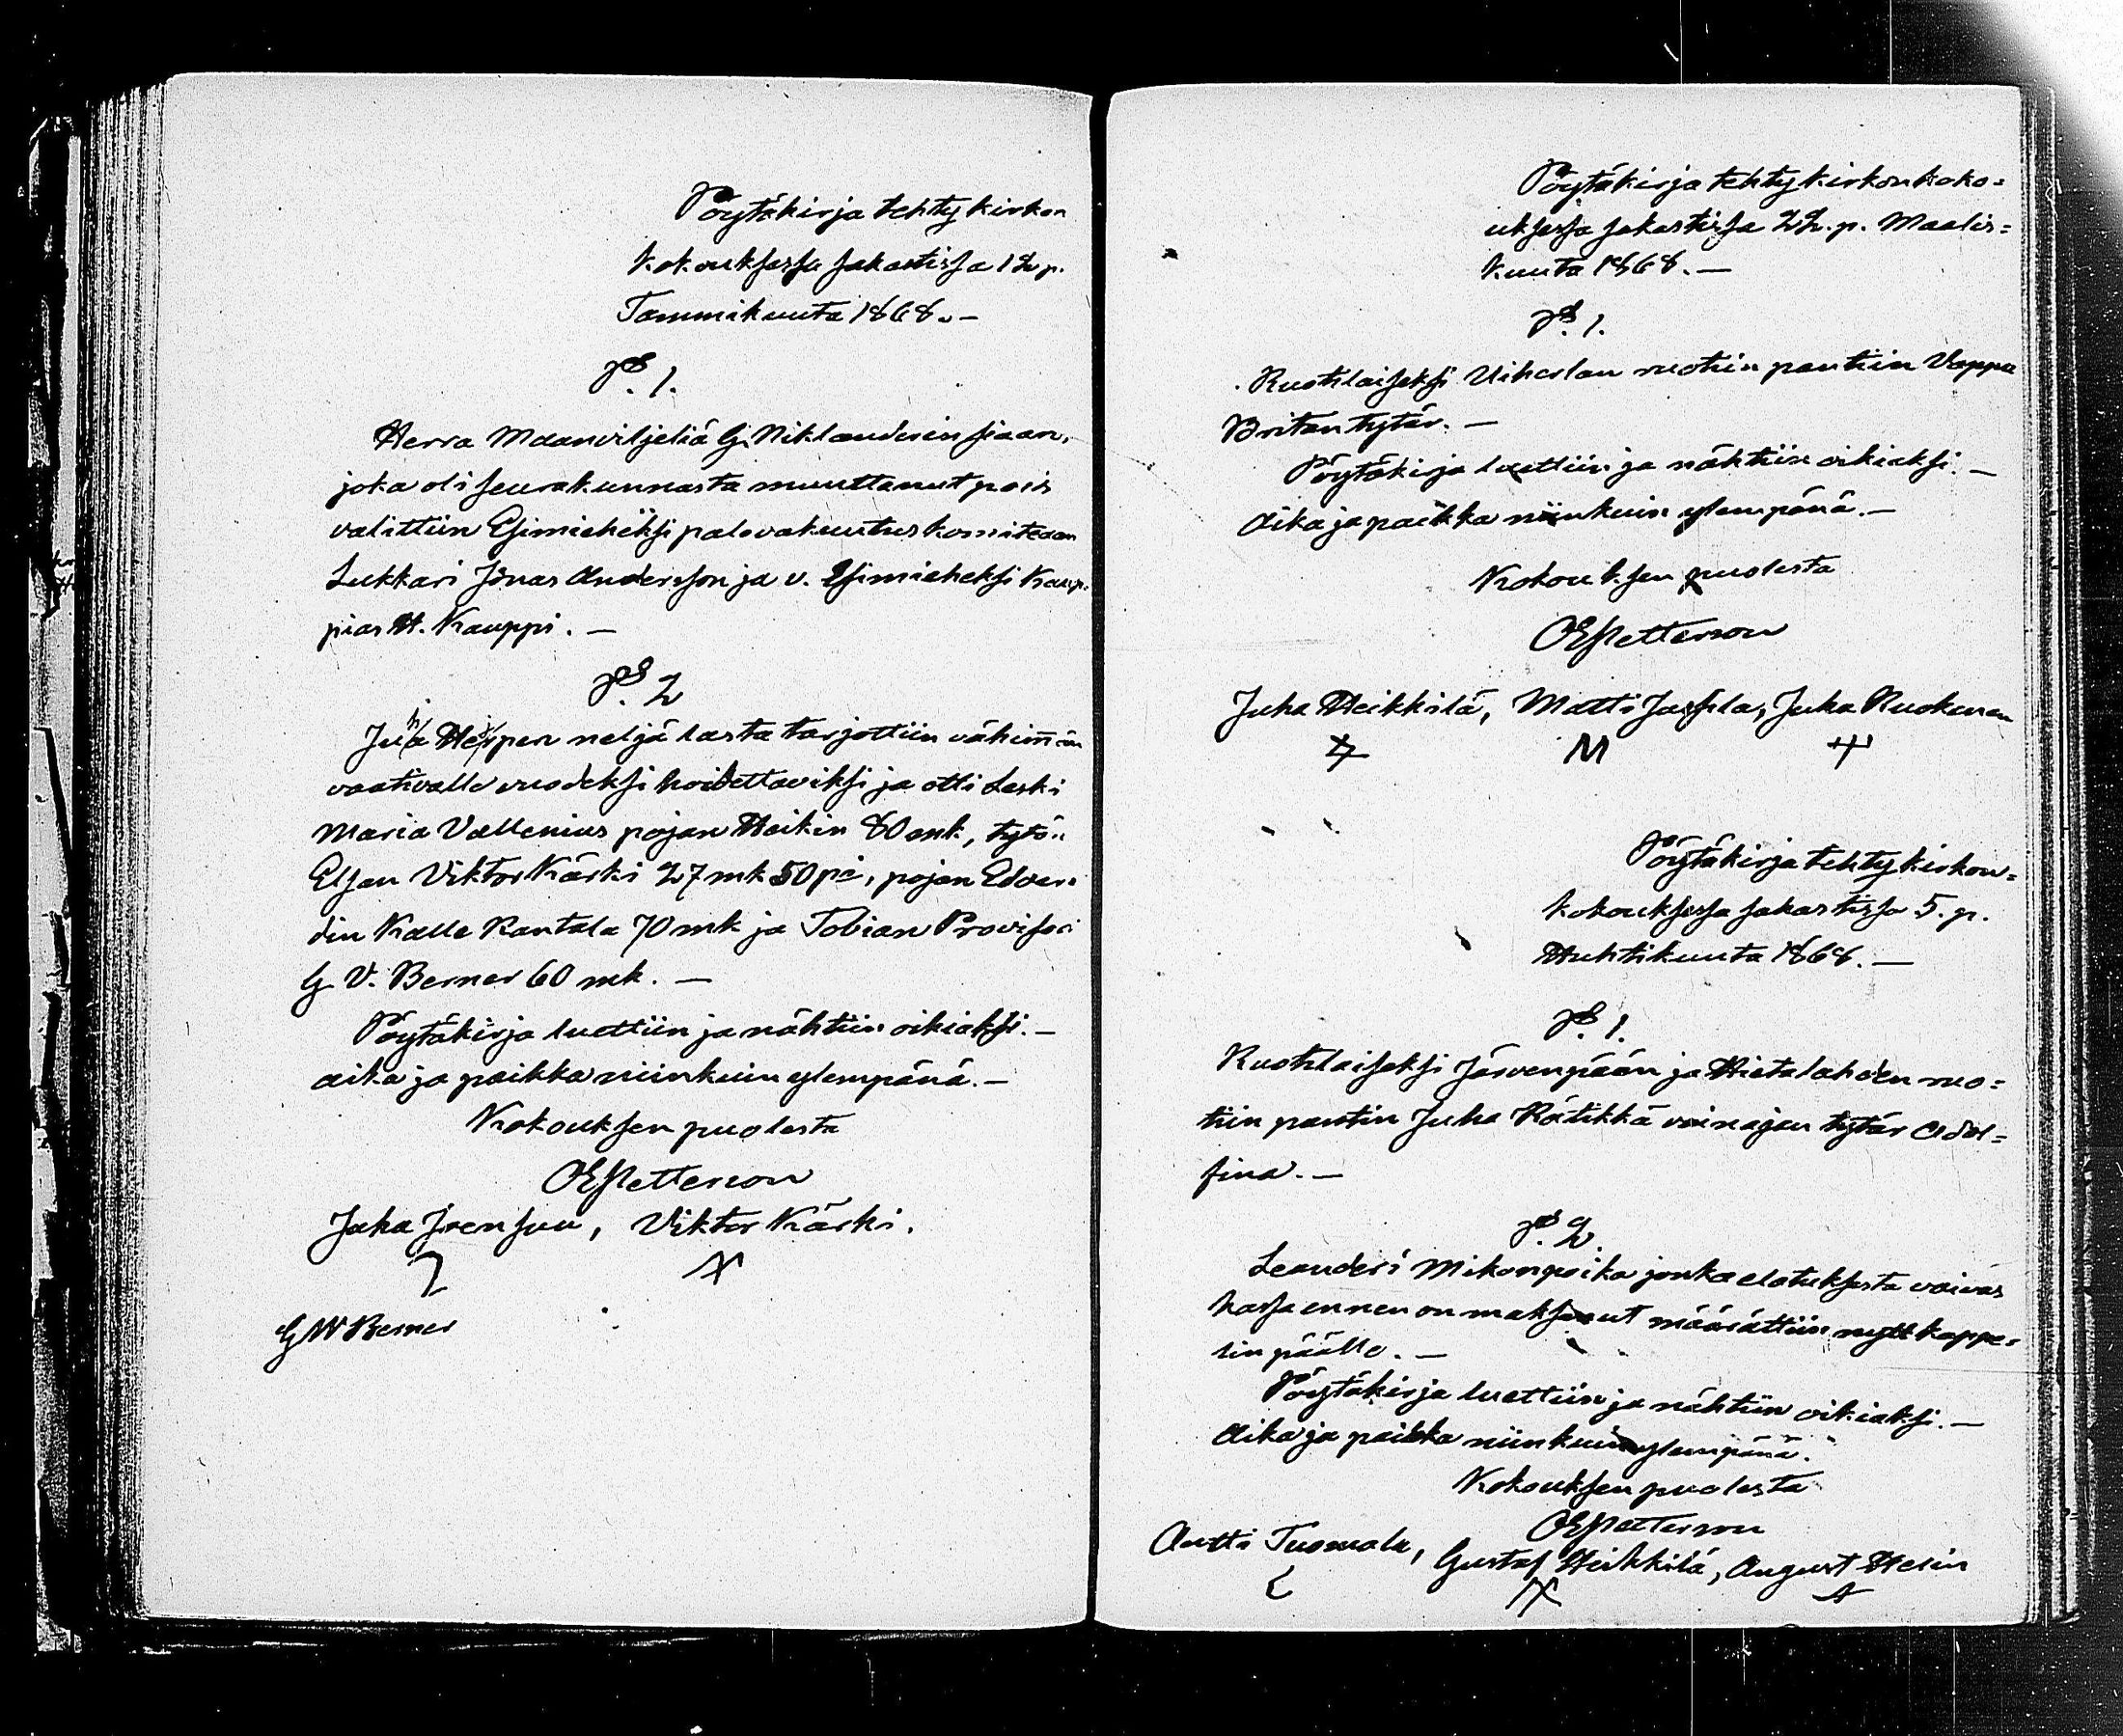 Pöytäkirja tehty kirkon
kokouksessa sakastissa 12 p.
Tammikuuta 1868. —
§. 1.
Herra Maanviljeliä G. Niklanderin siaan,
joka oli seurakunnasta muuttanut pois
valittiin Esimieheksi palovakuutus komiteaan
Lukkari Jonas Andersson ja v. Esimieheksi Kaup-
pias H. Kauppi. —
§. 2
Juha neljä lasta tarjottiin vähimmän
vaativalle vuodeksi hoidettaviksi ja otti Leski
Maria Vallenius pojan Heikin 80 mk, tytön
Elsan Viktor Kärki 27 mk 50 pi, pojan Edvar-
din Kalle Rantala 70 mk ja Tobian Provisori
G. V. Berner 60 mk. —
Pöytäkirja luettiin ja nähtiin oikiaksi. —
aika ja paikka niinkuin ylempänä. —
Kokouksen puolesta
OE Petterson
Juha Isensuu, Viktor Kärki.
GW Berner
Pöytäkirja tehty kirkonkoko=
uksessa sakastissa 22. p. Maalis=
kuuta 1868. —
§. 1.
Ruotilaiseksi Uiherlan ruotiin pantiin Vappu
Britan tytär. —
Pöytäkirja luettiin ja nähtiin oikiaksi. —
Aika ja paikka niinkuin ylempänä. —
Kokouksen puolesta
OE Petterson
Juha Heikkilä, Matti Jussila, Juha Ruokanen
M
Pöytäkirja tehty kirkon=
kokouksessa sakastissa 5. p.
Huhtikuuta 1868. —
§. 1.
Ruotilaiseksi Järvenpään ja Hietalahden ruo=
tiin pantiin Juha Rätikkä vainajan tytär Adol=
fina. —
§. 2.
Leanderi Mikonpoika jonka elatuksesta vaivas
kassa ennen on maksanut määrättiin nytt kappe-
lin päälle. —
Pöytäkirja luettiin ja nähtiin oikiaksi. —
Aika ja paikka niinkuin ylempänä.
Kokouksen puolesta
OE Petterson
Antti Tuomala, Gustaf Heikkilä, August Helin